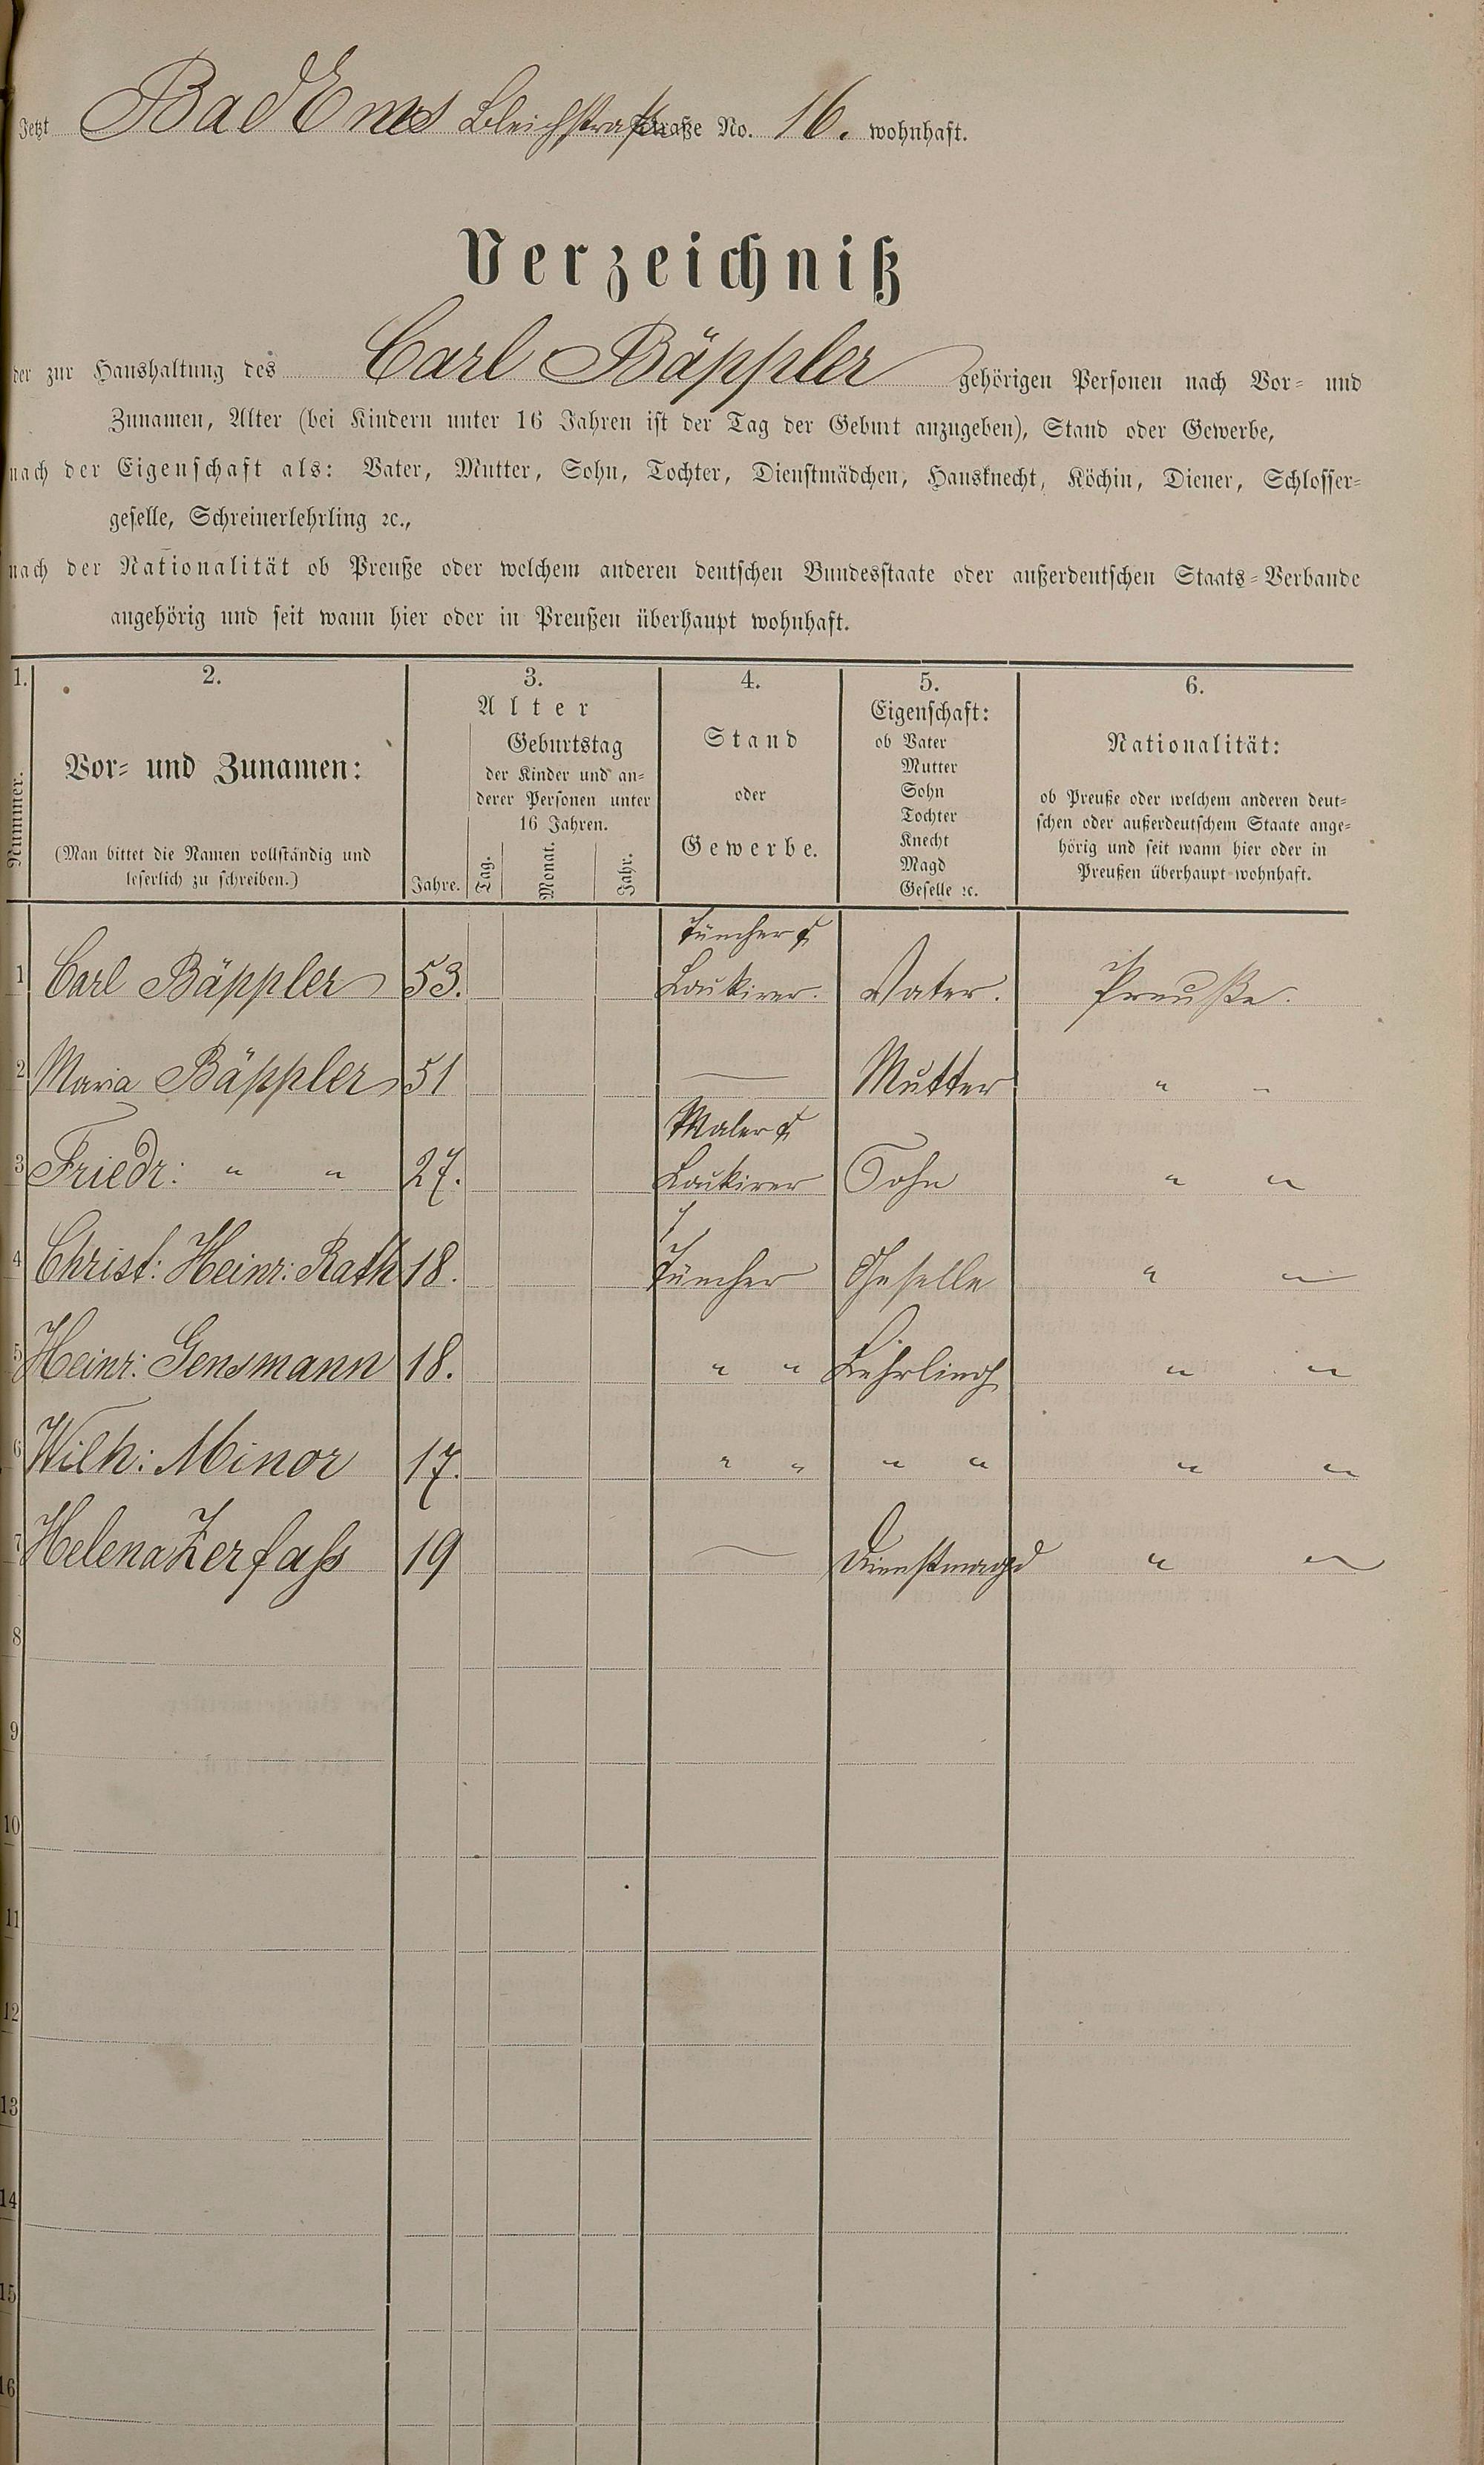 Jetzt Bad Ems Bleichstraße Straße No. 16. wohnhaft.
Verzeichniß
der zur Haushaltung des Carl Bäppler gehörigen Personen nach Vor- und
Zunamen, Alter (bei Kindern unter 16 Jahren ist der Tag der Geburt anzugeben), Stand oder Gewerbe,
nach der Eigenschaft als: Vater, Mutter, Sohn, Tochter, Dienstmädchen, Hausknecht, Köchin, Diener, Schlosser-
geselle, Schreinerlehrling ꝛc.,
nach der Nationalität ob Preuße oder welchem anderen deutschen Bundesstaate oder außerdeutschen Staats-Verbande
angehörig und seit wann hier oder in Preußen überhaupt wohnhaft.
1. 2. 3. 4. 5. 6.
Nummer.
Vor- und Zunamen:
(Man bittet die Namen vollständig und
leserlich zu schreiben.)
Alter
Geburtstag
der Kinder und an-
derer Personen unter
16 Jahren.
Jahre. Tag. Monat. Jahr.
Stand
oder
Gewerbe.
Eigenschaft:
ob Vater
Mutter
Sohn
Tochter
Knecht
Magd
Geselle ꝛc.
Nationalität:
ob Preuße oder welchem anderen deut-
schen oder außerdeutschem Staate ange-
hörig und seit wann hier oder in
Preußen überhaupt wohnhaft.
Tüncher &
1 Carl Bäppler 53. Lackirer. Vater. Preuße.
2 Maria Bäppler 51 — Mutter " "
Maler &
3 Friedr: " " 27. Lackirer Sohn " "
4 Christ: Heinr: Rath 18. Tüncher Geselle " "
5 Heinr: Gensmann 18. " " Lehrling " "
6 Wilh: Minor 17. " " " " " "
7 Helena Zerfaß 19 — Dienstmagd " "
8
9
10
11
12
13
14
15
16